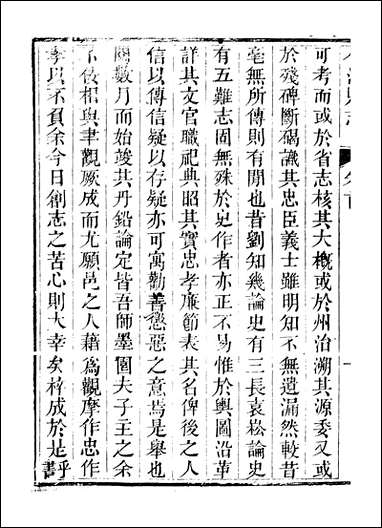 可考而或於省志核其大概或於州治溯其源委又或
於殘碑斷碣識其忠臣義士雖明知不無遺漏然較昔
毫無所傳則有間也昔劉知幾論史有三長袁崧論史
有五難志固無殊於史作者亦正不易惟於輿圖沿革
詳其文官職祀典昭其實忠孝廉節表其名俾後之人
信以傳信疑以存疑亦可寓勸善懲惡之意焉是舉也
閱數月而始竣其丹鉛論定皆吾師墨園夫子主之余
不佞相與聿觀厥成而尤願邑之人藉為觀摩作忠作
孝以不負余今日創志之苦心則大幸矣梓成於是乎書